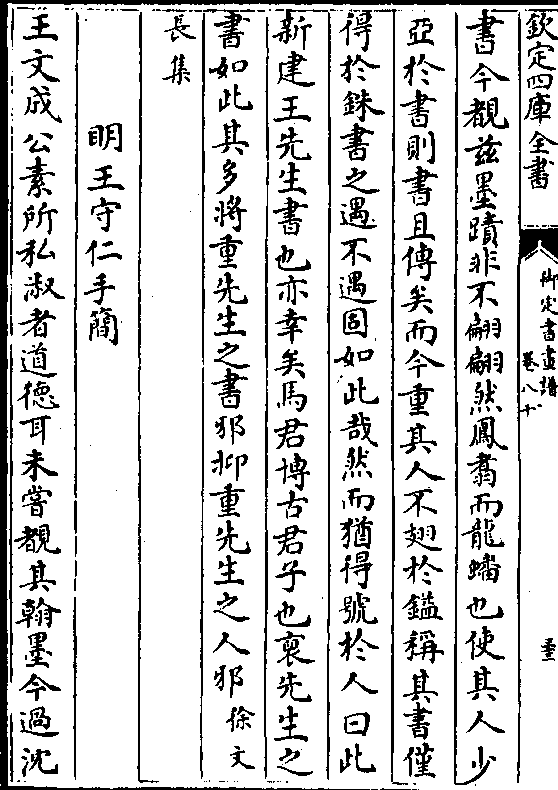 欽定四庫全書
御定書畫譜
卷八十
書今覩兹墨蹟非不翩翩然鳳翥而龍蟠也使其人少
亞於書則書且傳矣而今重其人不翅於鎰稱其書僅
得於銖書之遇不遇固如此哉然而猶得號於人曰此
新建王先生書也亦幸矣馬君博古君子也裒先生之
書如此其多將重先生之書邪抑重先生之人邪徐文
長集
明王守仁手簡
王文成公素所私淑者道德耳未嘗覩其翰墨今過沈